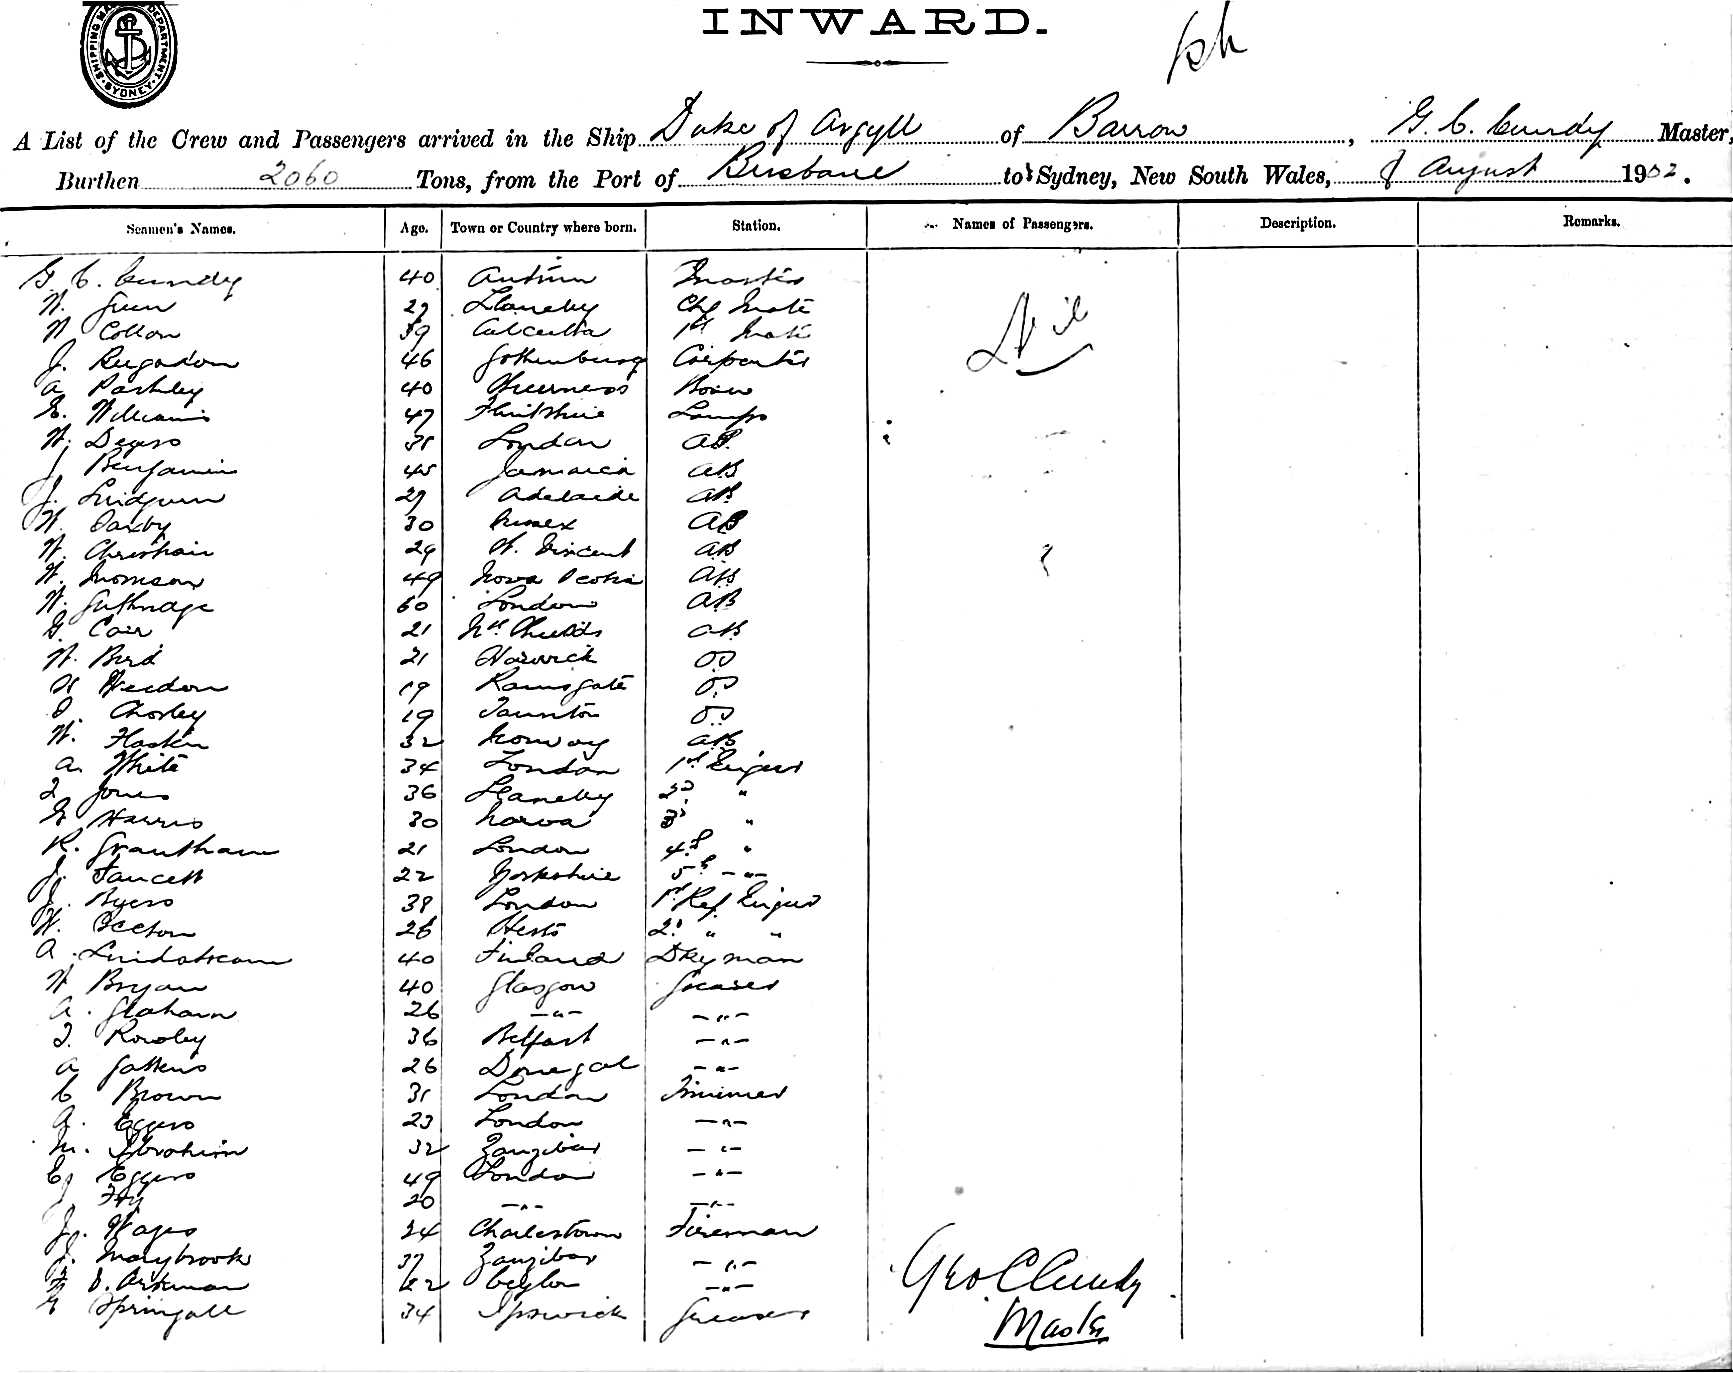 SHIPPING MASTER'S DEPARTMENT SYDNEY
INWARD.
A List of the Crew and Passengers arrived in the Ship Duke of Argyll of Barrow, G. C. Cundy Master,
Burthen 2060 Tons, from the Port of Brisbane to Sydney, New South Wales, 8 August 1902.
Seamen's Names. Age. Town or Country where born. Station. Names of Passengers. Description. Remarks.
G. C. Cundy 40 Antrim Master
W. Green 27 Llanelly Chf Mate
W Collon 39 Calcutta 1st Mate
J. 46 Gothenburg Carpenter
A Pashley 40 Sheerness Bosn
E. Williams 47 Flintshire Lamps
W. Deyers 38 London AB.
J Benjamin 45 Jamaica AB
J. Lindgren 29 Adelaide AB
W. Saxby 30 Sussex AB
W. Christian 29 St. Vincent AB
W. Thomson 49 Nova Scotia AB
W. Guthridge 60 London AB
G. Cair 21 Nth Shields AB
W. Bird 21 Warwick OS
H Weedon 19 Ramsgate OS
S. Chorley 19 Taunton OS
W. Flaskin 32 Norway AB
A. White 34 London 1st Engineer
T. Jones 36 Llanelly 2d "
G Harris 30 Narva 3d "
R. Grantham 21 London 4th "
J. Faucett 22 Yorkshire 5th -"-
J. Byers 38 London 1st Ref Engineer
W. Seeton 26 Herts 2d " "
A. Lindstream 40 Finland Dkyman
W Bryan 40 Glasgow Greaser
A. Graham 26 -"- -"-
T. Rowley 36 Belfast -"-
A Gatkens 26 Donegal -"-
C Brown 31 London Trimmer
A. Eggers 23 London -"-
M. Ibrahim 32 Zanzibar -"-
E. Eggers 49 London -"-
J Fry 20 -"- -"-
J. Wages 24 Charlestown Fireman
J. Marybrook 37 Zanzibar -"-
F. D. Arkman 62 Ceylon -"-
G Springall 34 Ipswich Greaser
Nil
Geo. C Cundy
Master